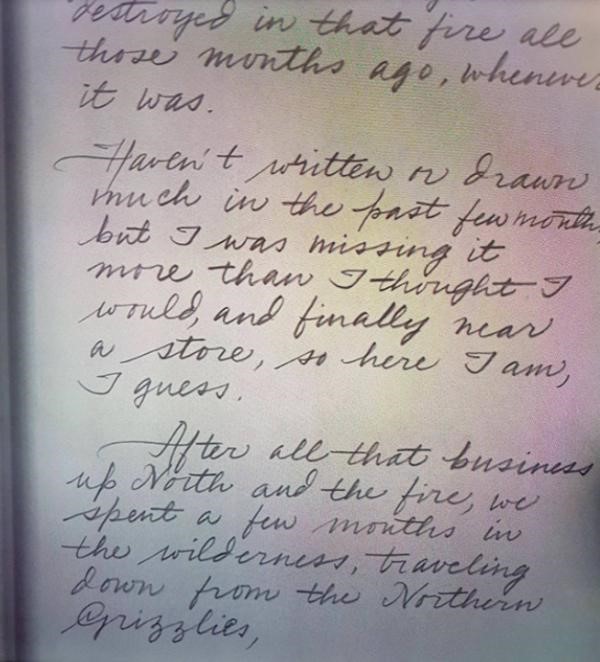 destroyed in that fire all
those months ago, whenever
it was.
Haven't written or drawn
much in the past few months,
but I was missing it
more than I thought I
would, and finally near
a store, so here I am,
I guess.
After all that business
up North and the fire, we
spent a few months in
the wilderness, traveling
down from the Northern
Grizzlies,